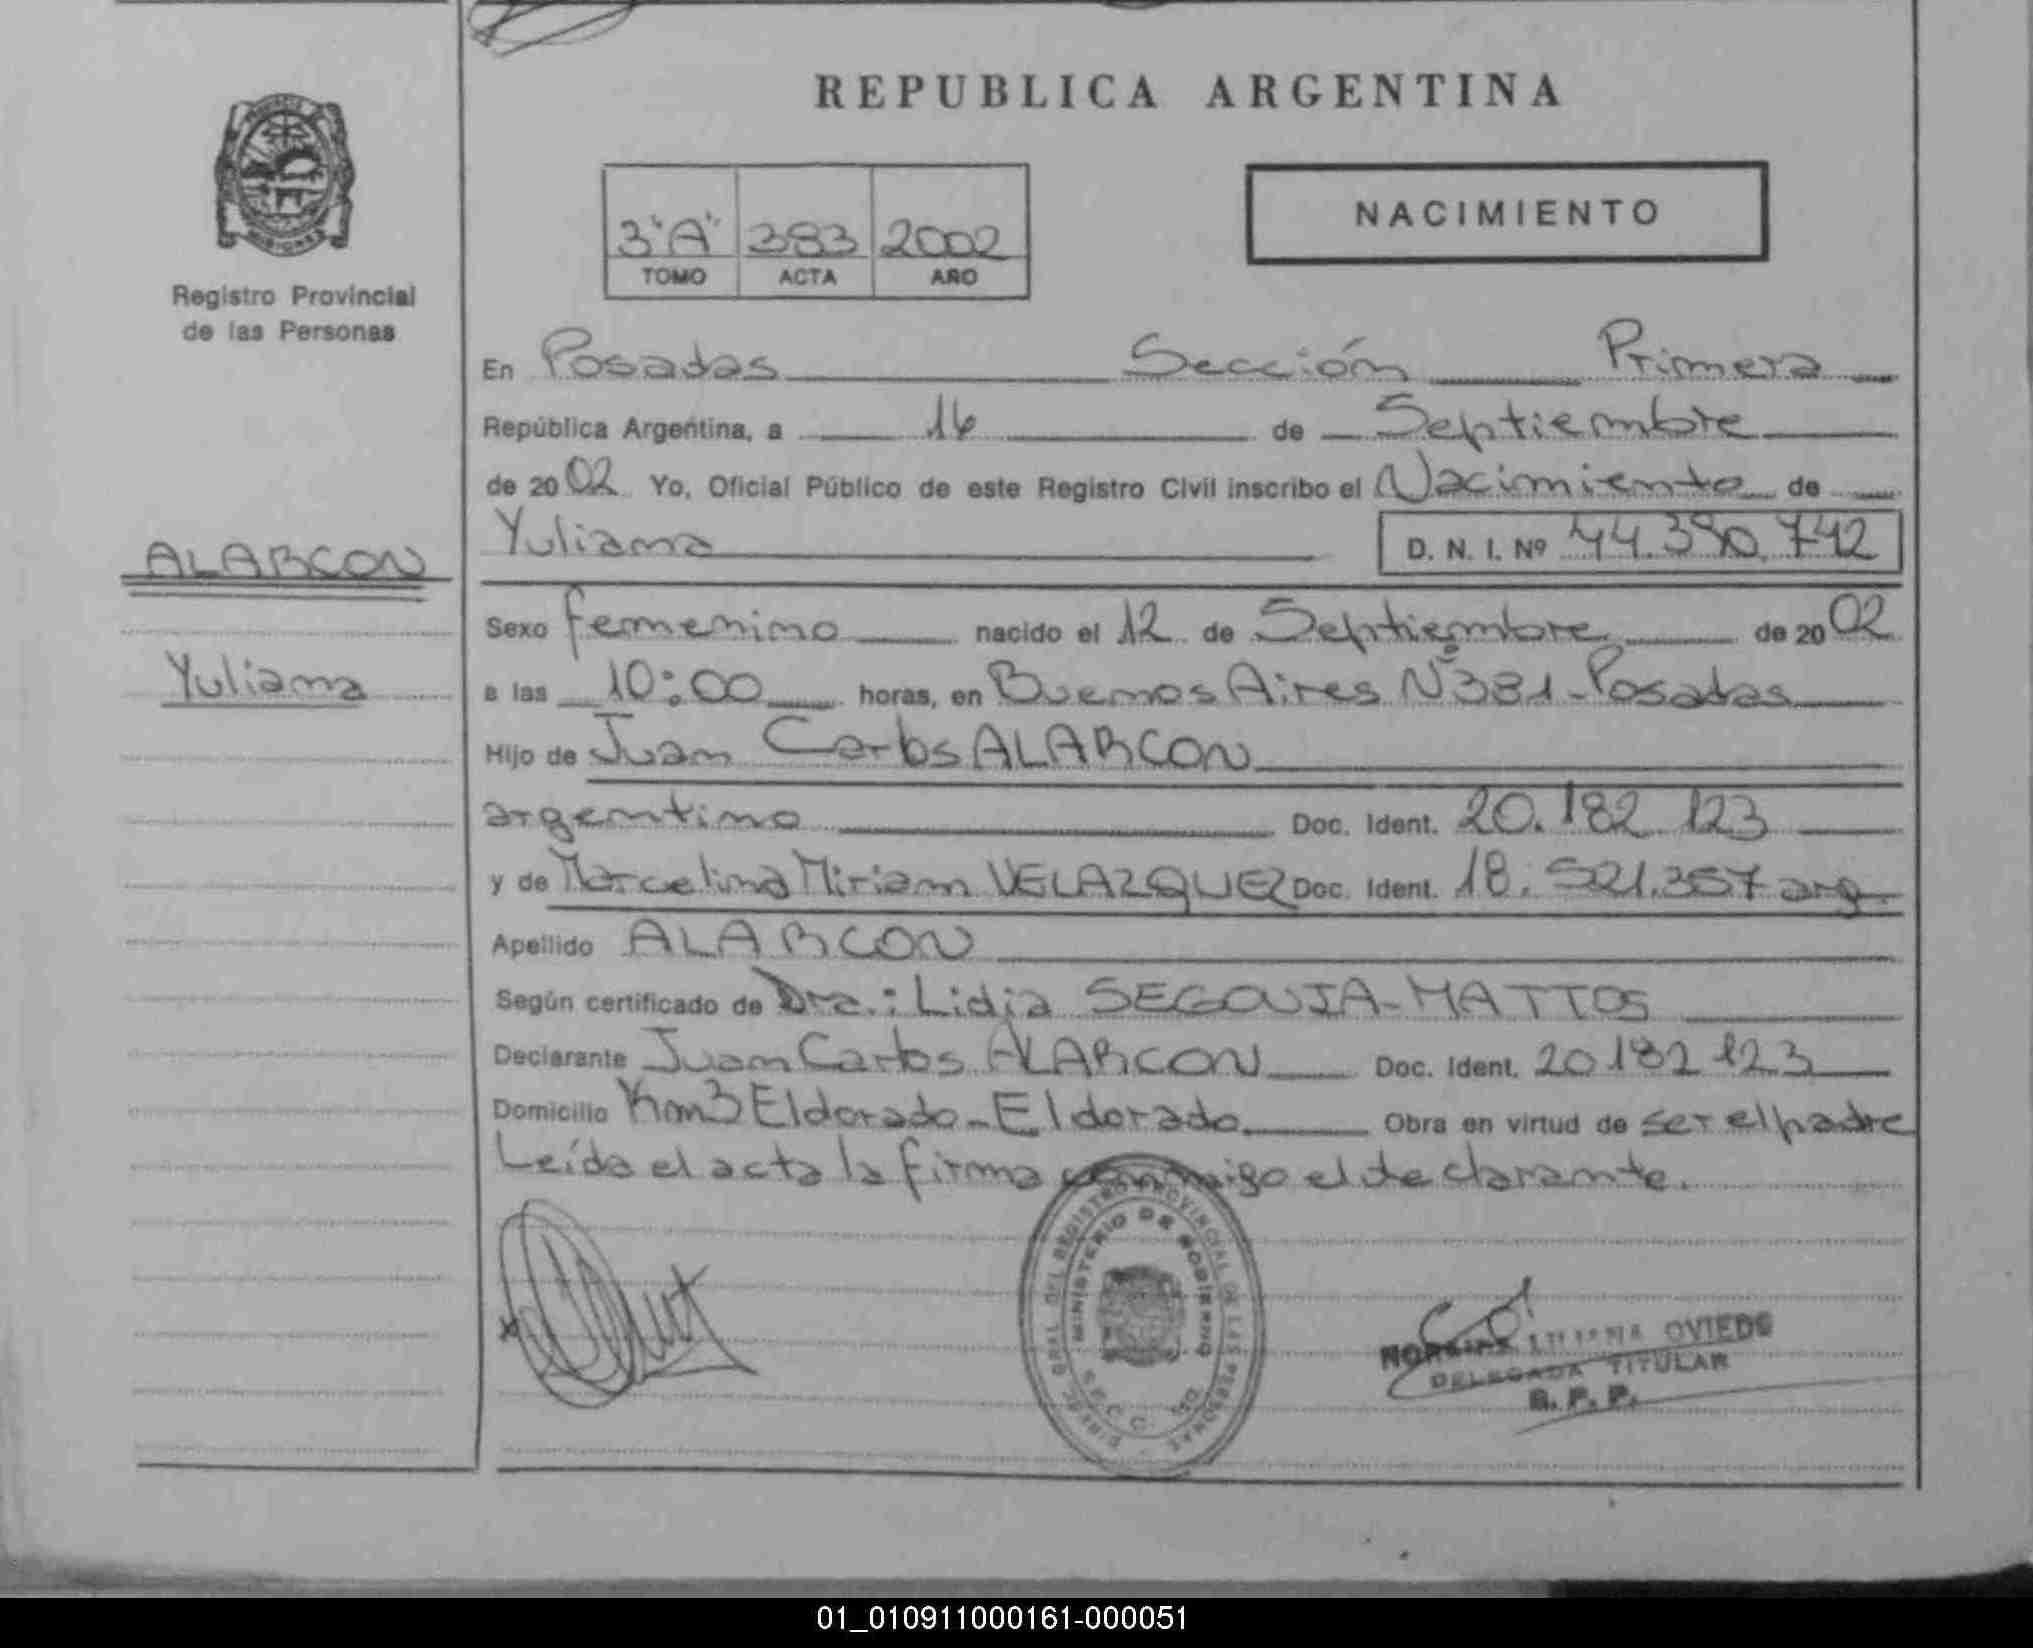 REPUBLICA ARGENTINA
NACIMIENTO
3"A" 383 2002
TOMO ACTA AÑO
Registro Provincial
de las Personas
En Posadas Sección Primera
República Argentina, a 16 de Septiembre
de 2002 Yo, Oficial Público de este Registro Civil inscribo el Nacimiento de
Yuliana D. N. I. Nº 44.390.742
ALARCON
Sexo femenino nacido el 12 de Septiembre de 2002
Yuliana
a las 10:00 horas, en Buenos Aires Nº381-Posadas
Hijo de Juan Carlos ALARCON
argentino Doc. Ident. 20.182.123
y de Marcelina Miriam VELAZQUEZ Doc. Ident. 18.521.357 arg.
Apellido ALARCON
Según certificado de Dra.: Lidia SEGOVIA-MATTOS
Declarante Juan Carlos ALARCON Doc. Ident. 20.182.123
Domicilio Km3 Eldorado-Eldorado Obra en virtud de ser el padre
Leída el acta la firma conmigo el declarante.
REGISTRO PROVINCIAL DE LAS PERSONAS
MINISTERIO DE GOBIERNO
OVIEDO
DELEGADA TITULAR
R. P. P.
01_010911000161-000051